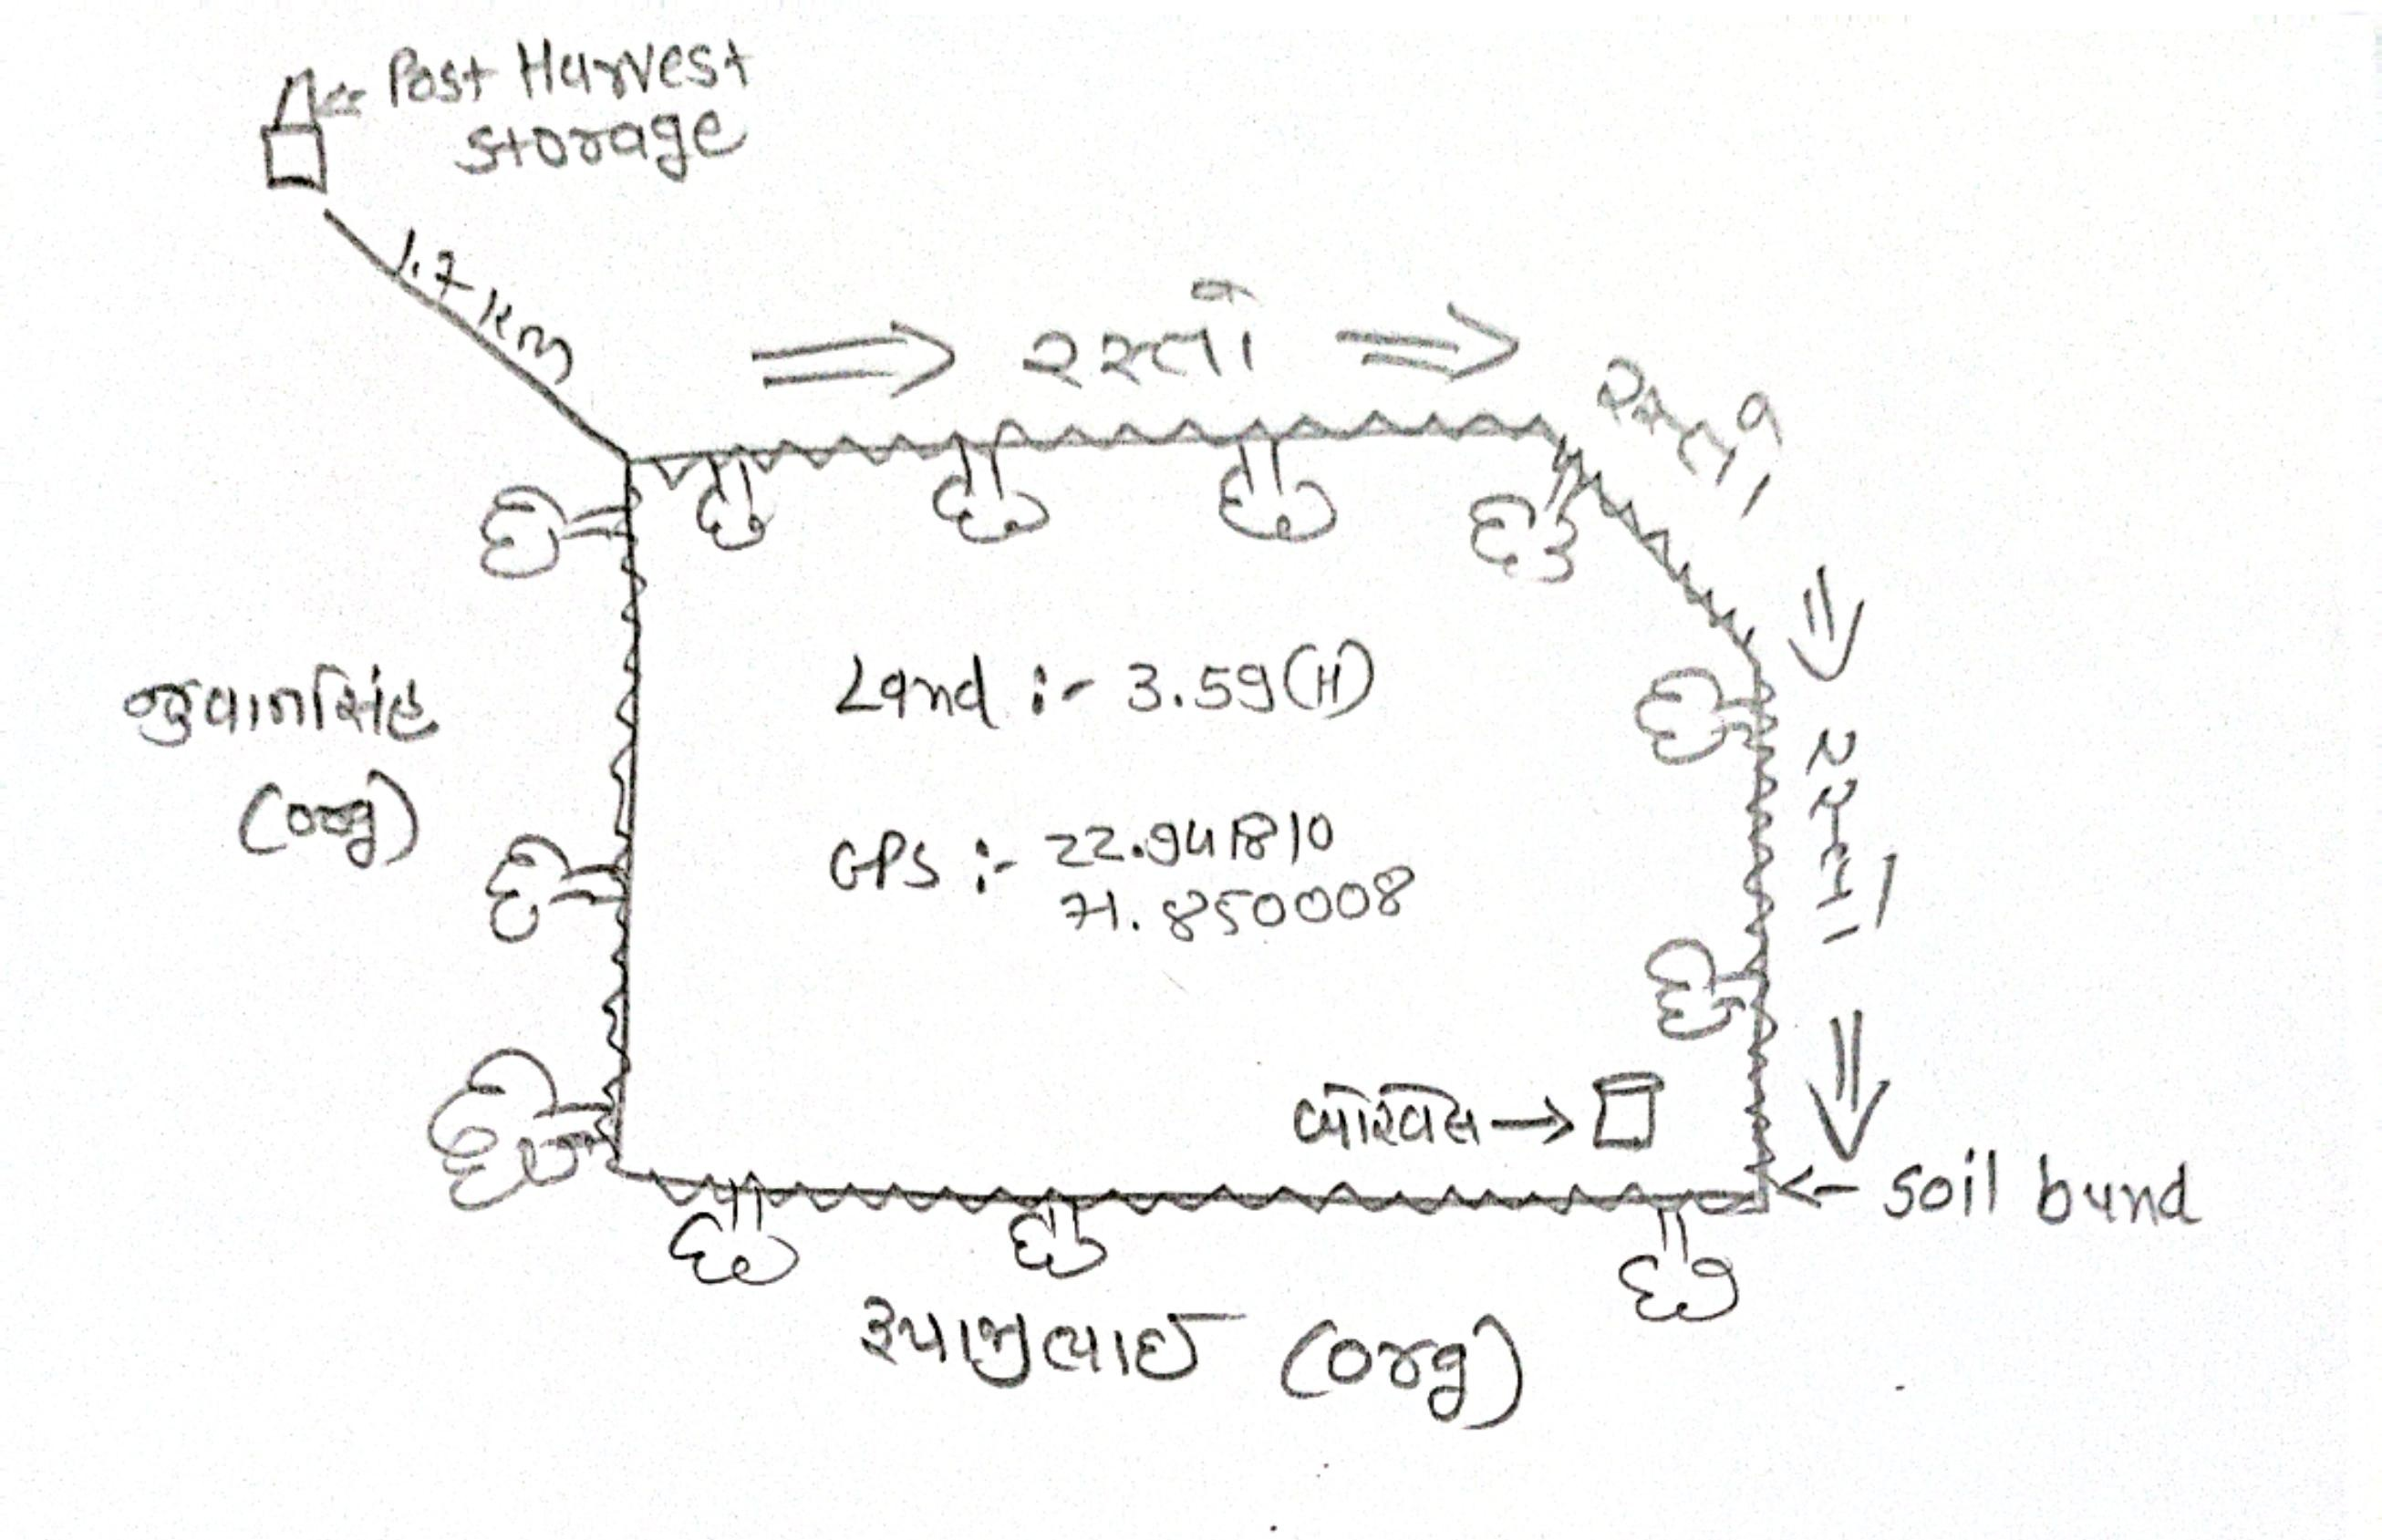 Post Harvest
Storage
1.7 km
રસ્તો
રસ્તો
Land :- 3.59 (H)
જુવાનસિંહ
(org)
રસ્તો
GPS :- 22.941810
71.850008
બોરવેલ
soil bund
રૂપાજીભાઈ (org)